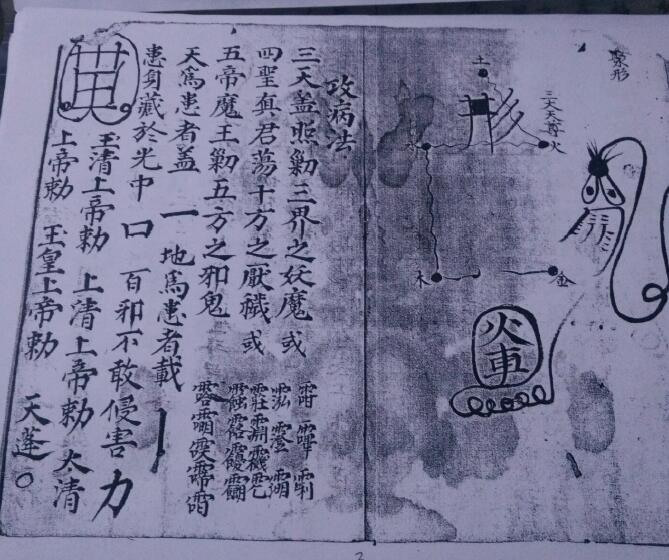 形
三天天尊
火
土
形
水
木
金
火車
攻病法
三天盖照勦三界之妖魔或
四聖真君蕩十方之厭穢或
五帝魔王勦五方之邪鬼
天爲患者盖 一 地爲患者載 丨
患身藏於光中 口 百邪不敢侵害 力
玉清上帝勅 上清上帝勅 太清
上帝勅 玉皇上帝勅 天蓬○